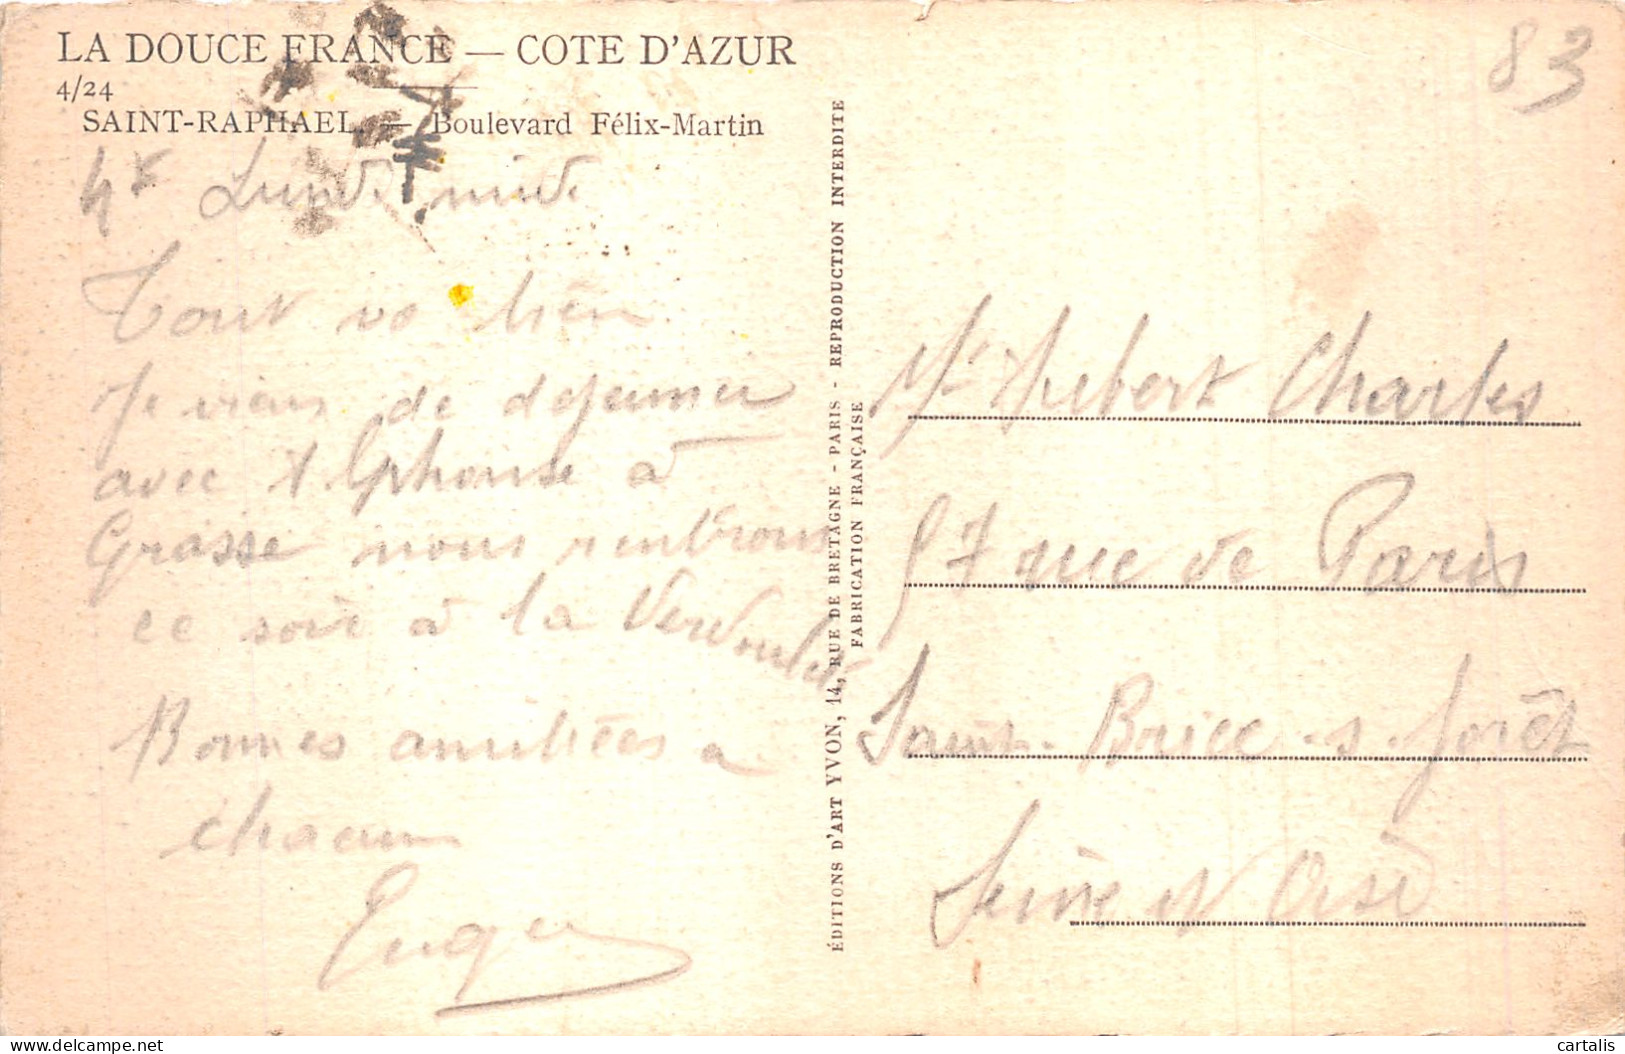 LA DOUCE FRANCE — COTE D'AZUR
83
4/24
SAINT-RAPHAEL. — Boulevard Félix-Martin
Lundi midi
Tout va bien
Je viens de dejeuner
avec Alphonse à
Grasse nous rentrons
ce soir à la Verdoulet
Bonnes amitiées a
chacun
ÉDITIONS D'ART YVON, 14, RUE DE BRETAGNE - PARIS - REPRODUCTION INTERDITE
FABRICATION FRANÇAISE
Mr Hebert Charles
97 rue de Paris
Saint-Brice-s-forêt
Seine et Oise
cartalis
delcampe.net